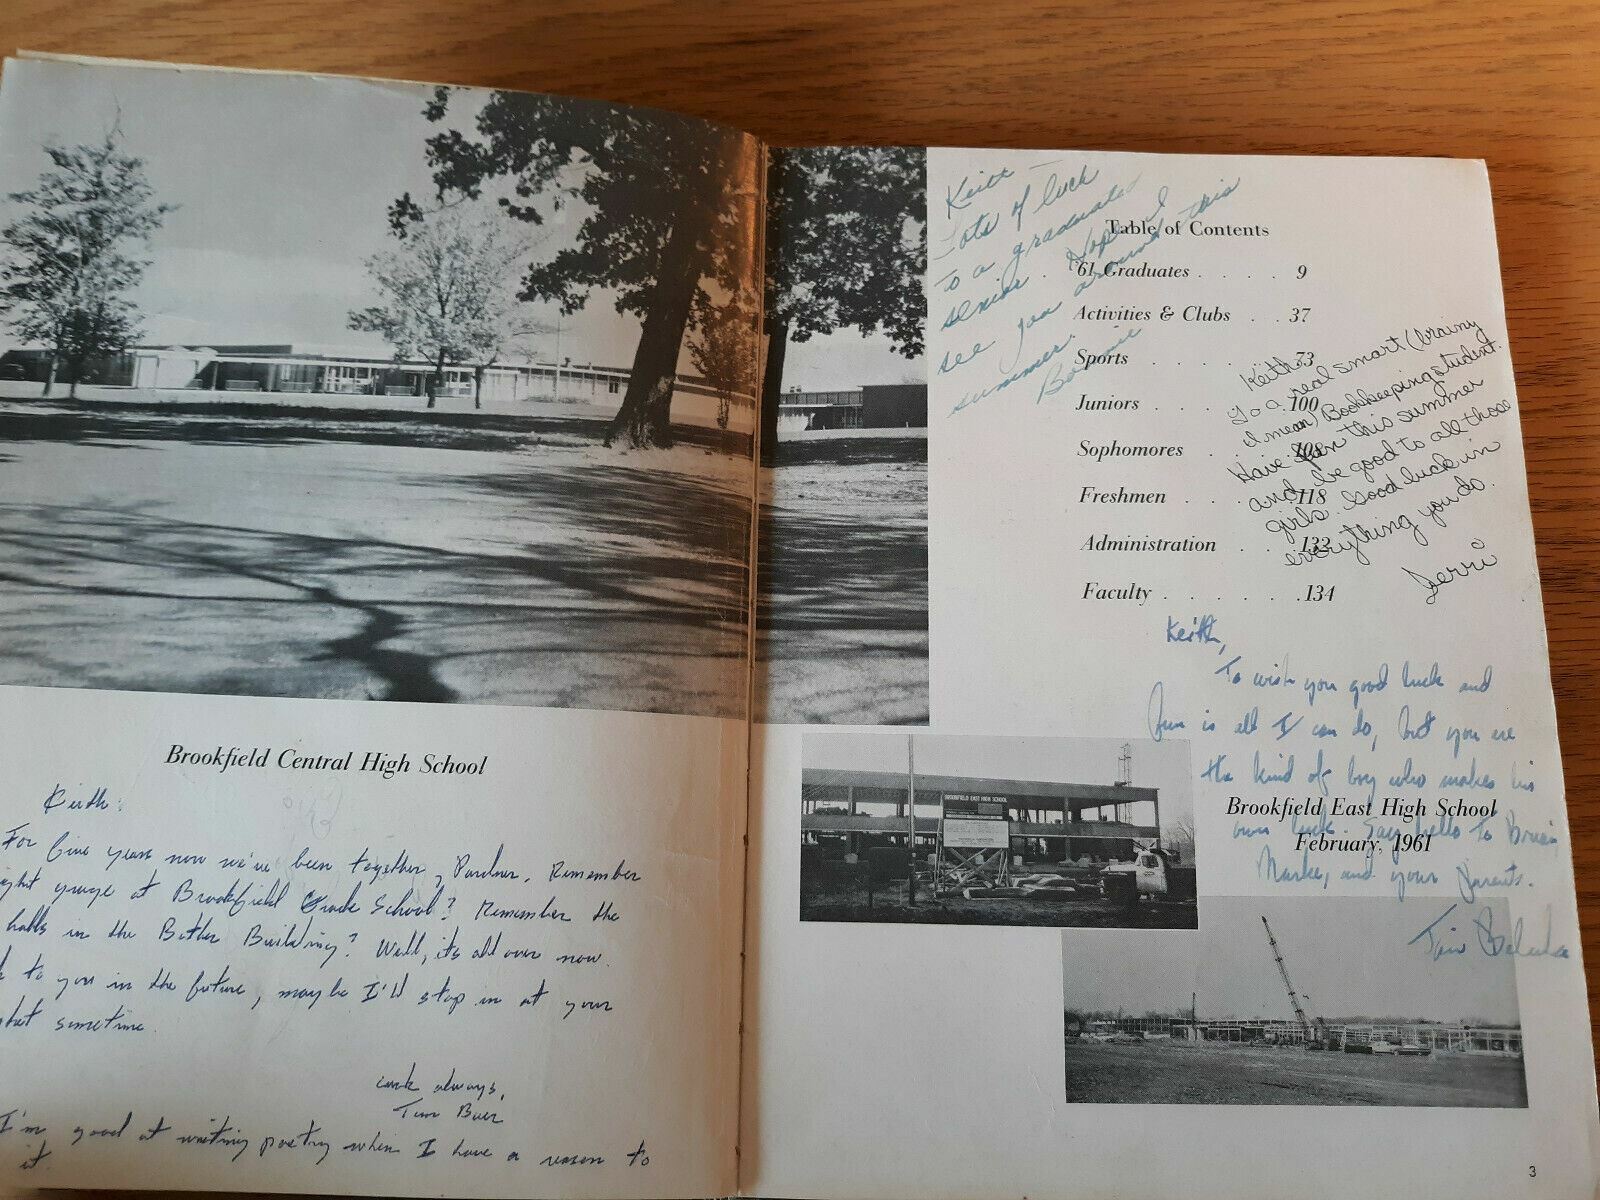 Brookfield Central High School
Keith:
For five years now we've been together, Pardner. Remember
at Brookfield Grade School? Remember the
halls in the Building? Well, it's all over now.
to you in the future, maybe I'll stop in at your
sometime.
luck always,
Tim
I'm good at writing poetry when I have a reason to
it.
Keith —
Lots of luck
to a graduated
senior. Hope I
see you around this
summer.
Bonnie
Table of Contents
'61 Graduates . . . . 9
Activities & Clubs . . 37
Sports . . . . . 73
Juniors . . . . 100
Sophomores . . . 108
Freshmen . . . . 118
Administration . . . 132
Faculty . . . . . . 134
Keith,
To a real smart (brainy
I mean) Bookkeeping student.
Have fun this summer
and be good to all those
girls. Good luck in
everything you do.
Gerri
Keith,
To wish you good luck and
fun is all I can do, but you are
the kind of boy who makes his
own luck. Say hello to Brian,
and your parents.
BROOKFIELD EAST HIGH SCHOOL
Brookfield East High School
February, 1961
3